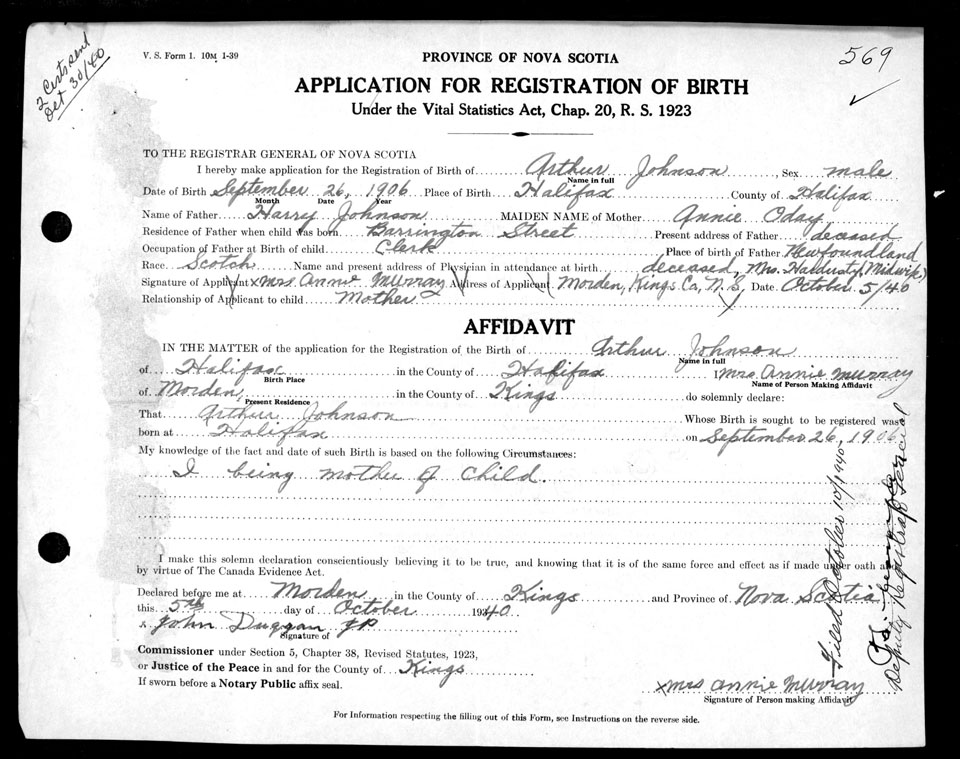 2 Certs. sent
Oct 30/40
V. S. Form 1. 10M 1-39
PROVINCE OF NOVA SCOTIA
569
APPLICATION FOR REGISTRATION OF BIRTH
Under the Vital Statistics Act, Chap. 20, R. S. 1923
TO THE REGISTRAR GENERAL OF NOVA SCOTIA
I hereby make application for the Registration of Birth of Arthur Johnson Sex male
Name in full
Date of Birth September 26, 1906 Place of Birth Halifax County of Halifax
Month Date Year
Name of Father Harry Johnson MAIDEN NAME of Mother Annie Oday
Residence of Father when child was born Barrington Street Present address of Father deceased
Occupation of Father at Birth of child Clerk Place of birth of Father Newfoundland
Race Scotch Name and present address of Physician in attendance at birth deceased, Mrs. (Midwife)
Signature of Applicant x Mrs. Annie Murray Address of Applicant Morden, Kings Co, N. S. Date October 5/40
Relationship of Applicant to child Mother
AFFIDAVIT
IN THE MATTER of the application for the Registration of the Birth of Arthur Johnson
Name in full
of Halifax in the County of Halifax I Mrs Annie Murray
Birth Place Name of Person Making Affidavit
of Morden, in the County of Kings do solemnly declare:
Present Residence
That Arthur Johnson Whose Birth is sought to be registered was
born at Halifax on September 26, 1906
My knowledge of the fact and date of such Birth is based on the following Circumstances:
I being mother of child.
I make this solemn declaration conscientiously believing it to be true, and knowing that it is of the same force and effect as if made under oath and
by virtue of The Canada Evidence Act.
Declared before me at Morden in the County of Kings and Province of Nova Scotia
this 5th day of October 1940
John Duggan JP
Signature of
Commissioner under Section 5, Chapter 38, Revised Statutes, 1923,
or Justice of the Peace in and for the County of Kings
If sworn before a Notary Public affix seal.
x Mrs Annie Murray
Signature of Person making Affidavit
For Information respecting the filling out of this Form, see Instructions on the reverse side.
Filed October 10/1940
Deputy Registrar General